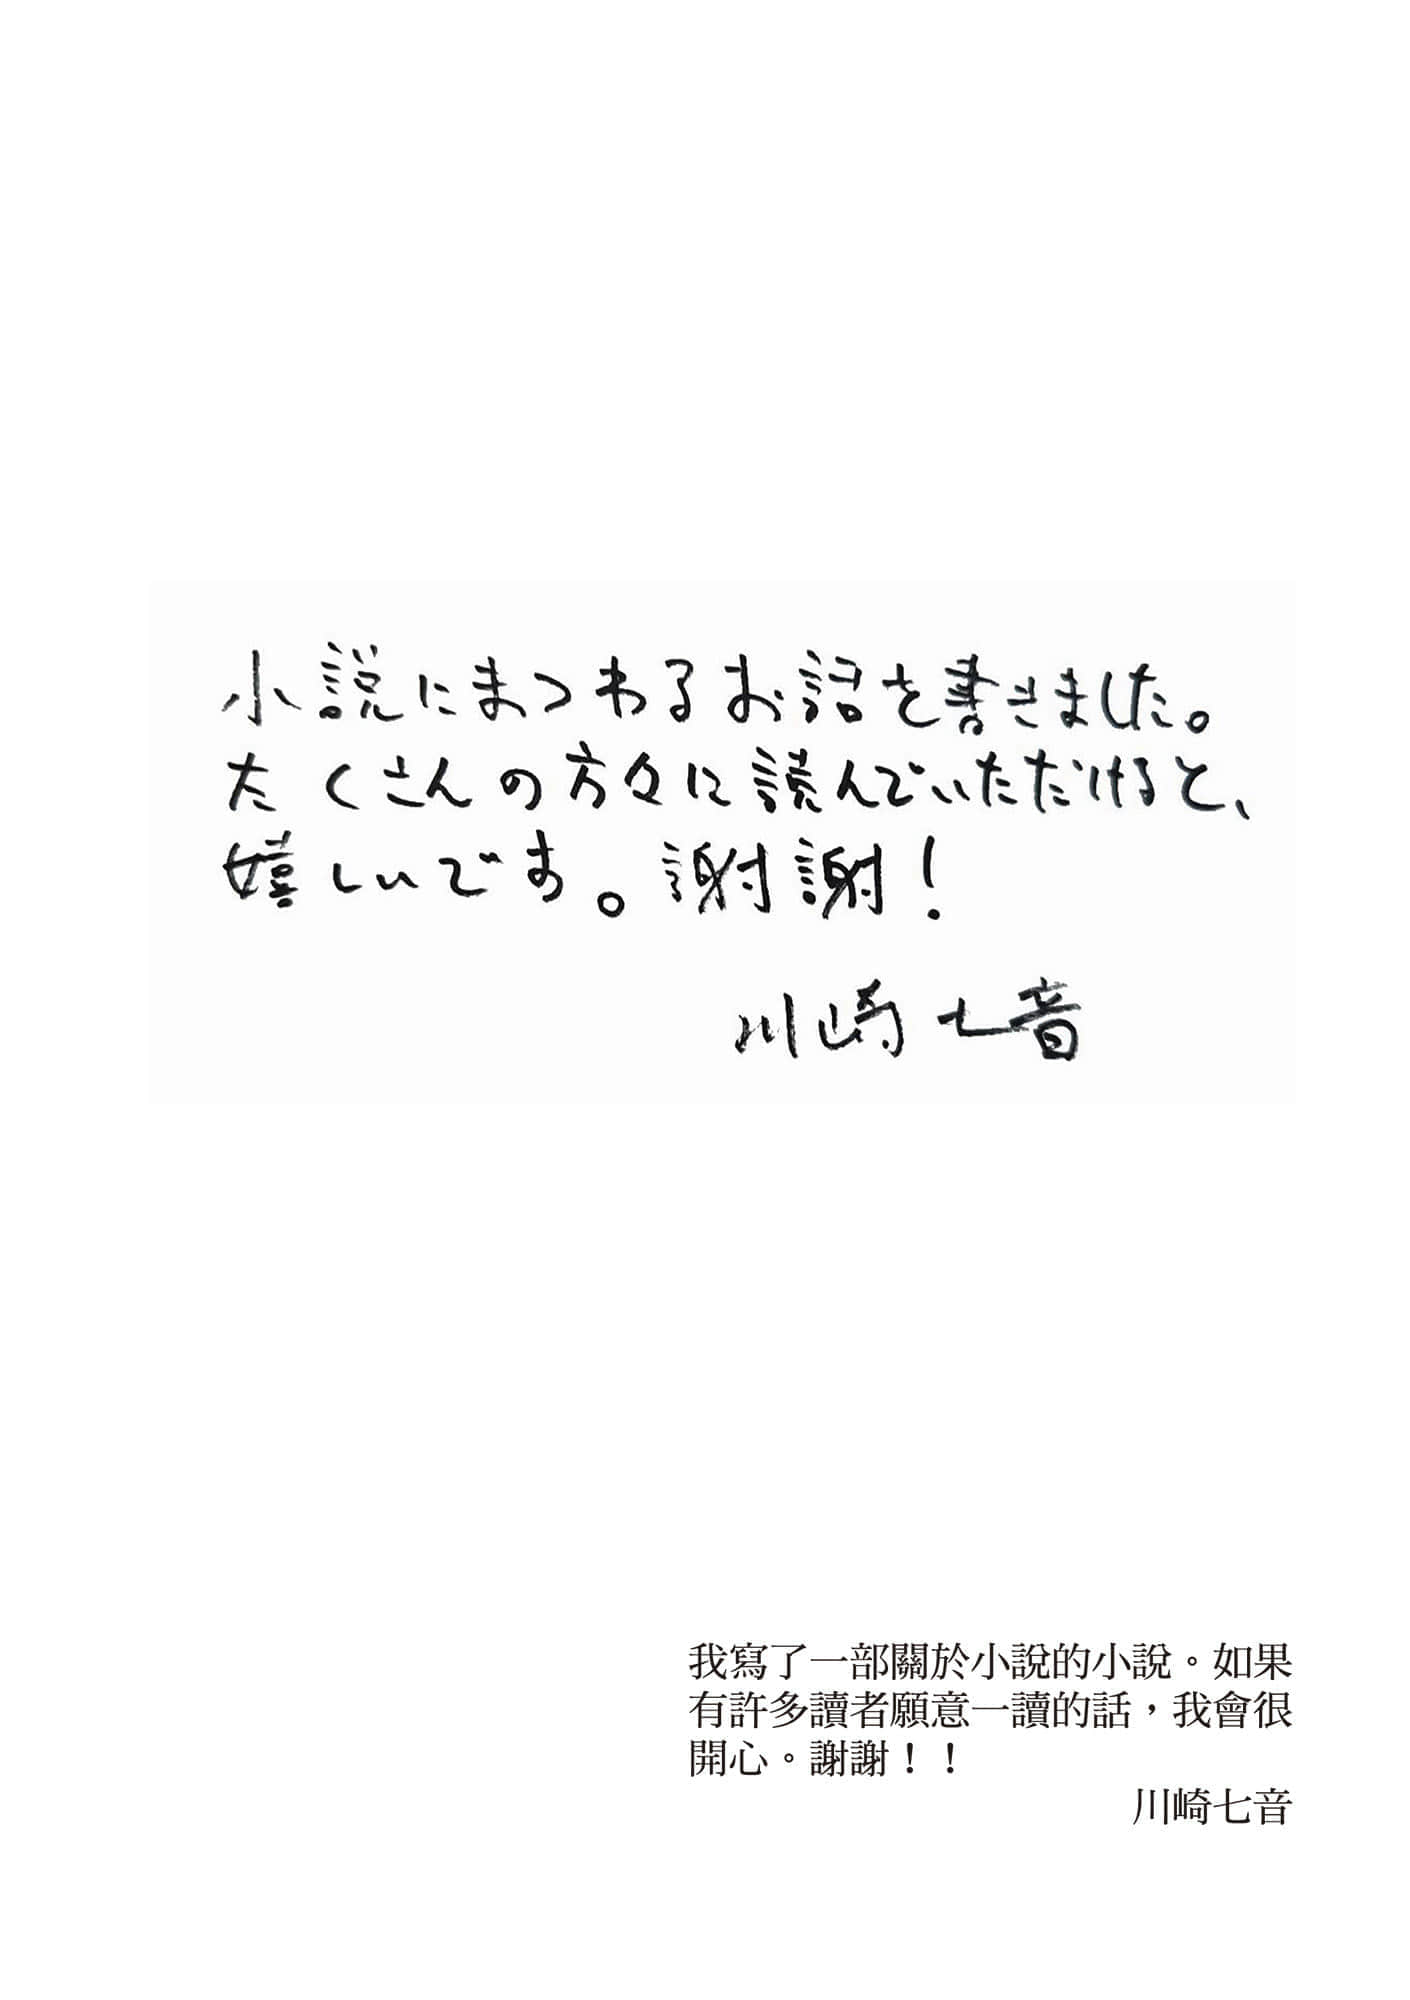 小説にまつわるお話を書きました。
たくさんの方々に読んでいただけると、
嬉しいです。謝謝！
川崎七音
我寫了一部關於小說的小說。如果
有許多讀者願意一讀的話，我會很
開心。謝謝！！
川崎七音